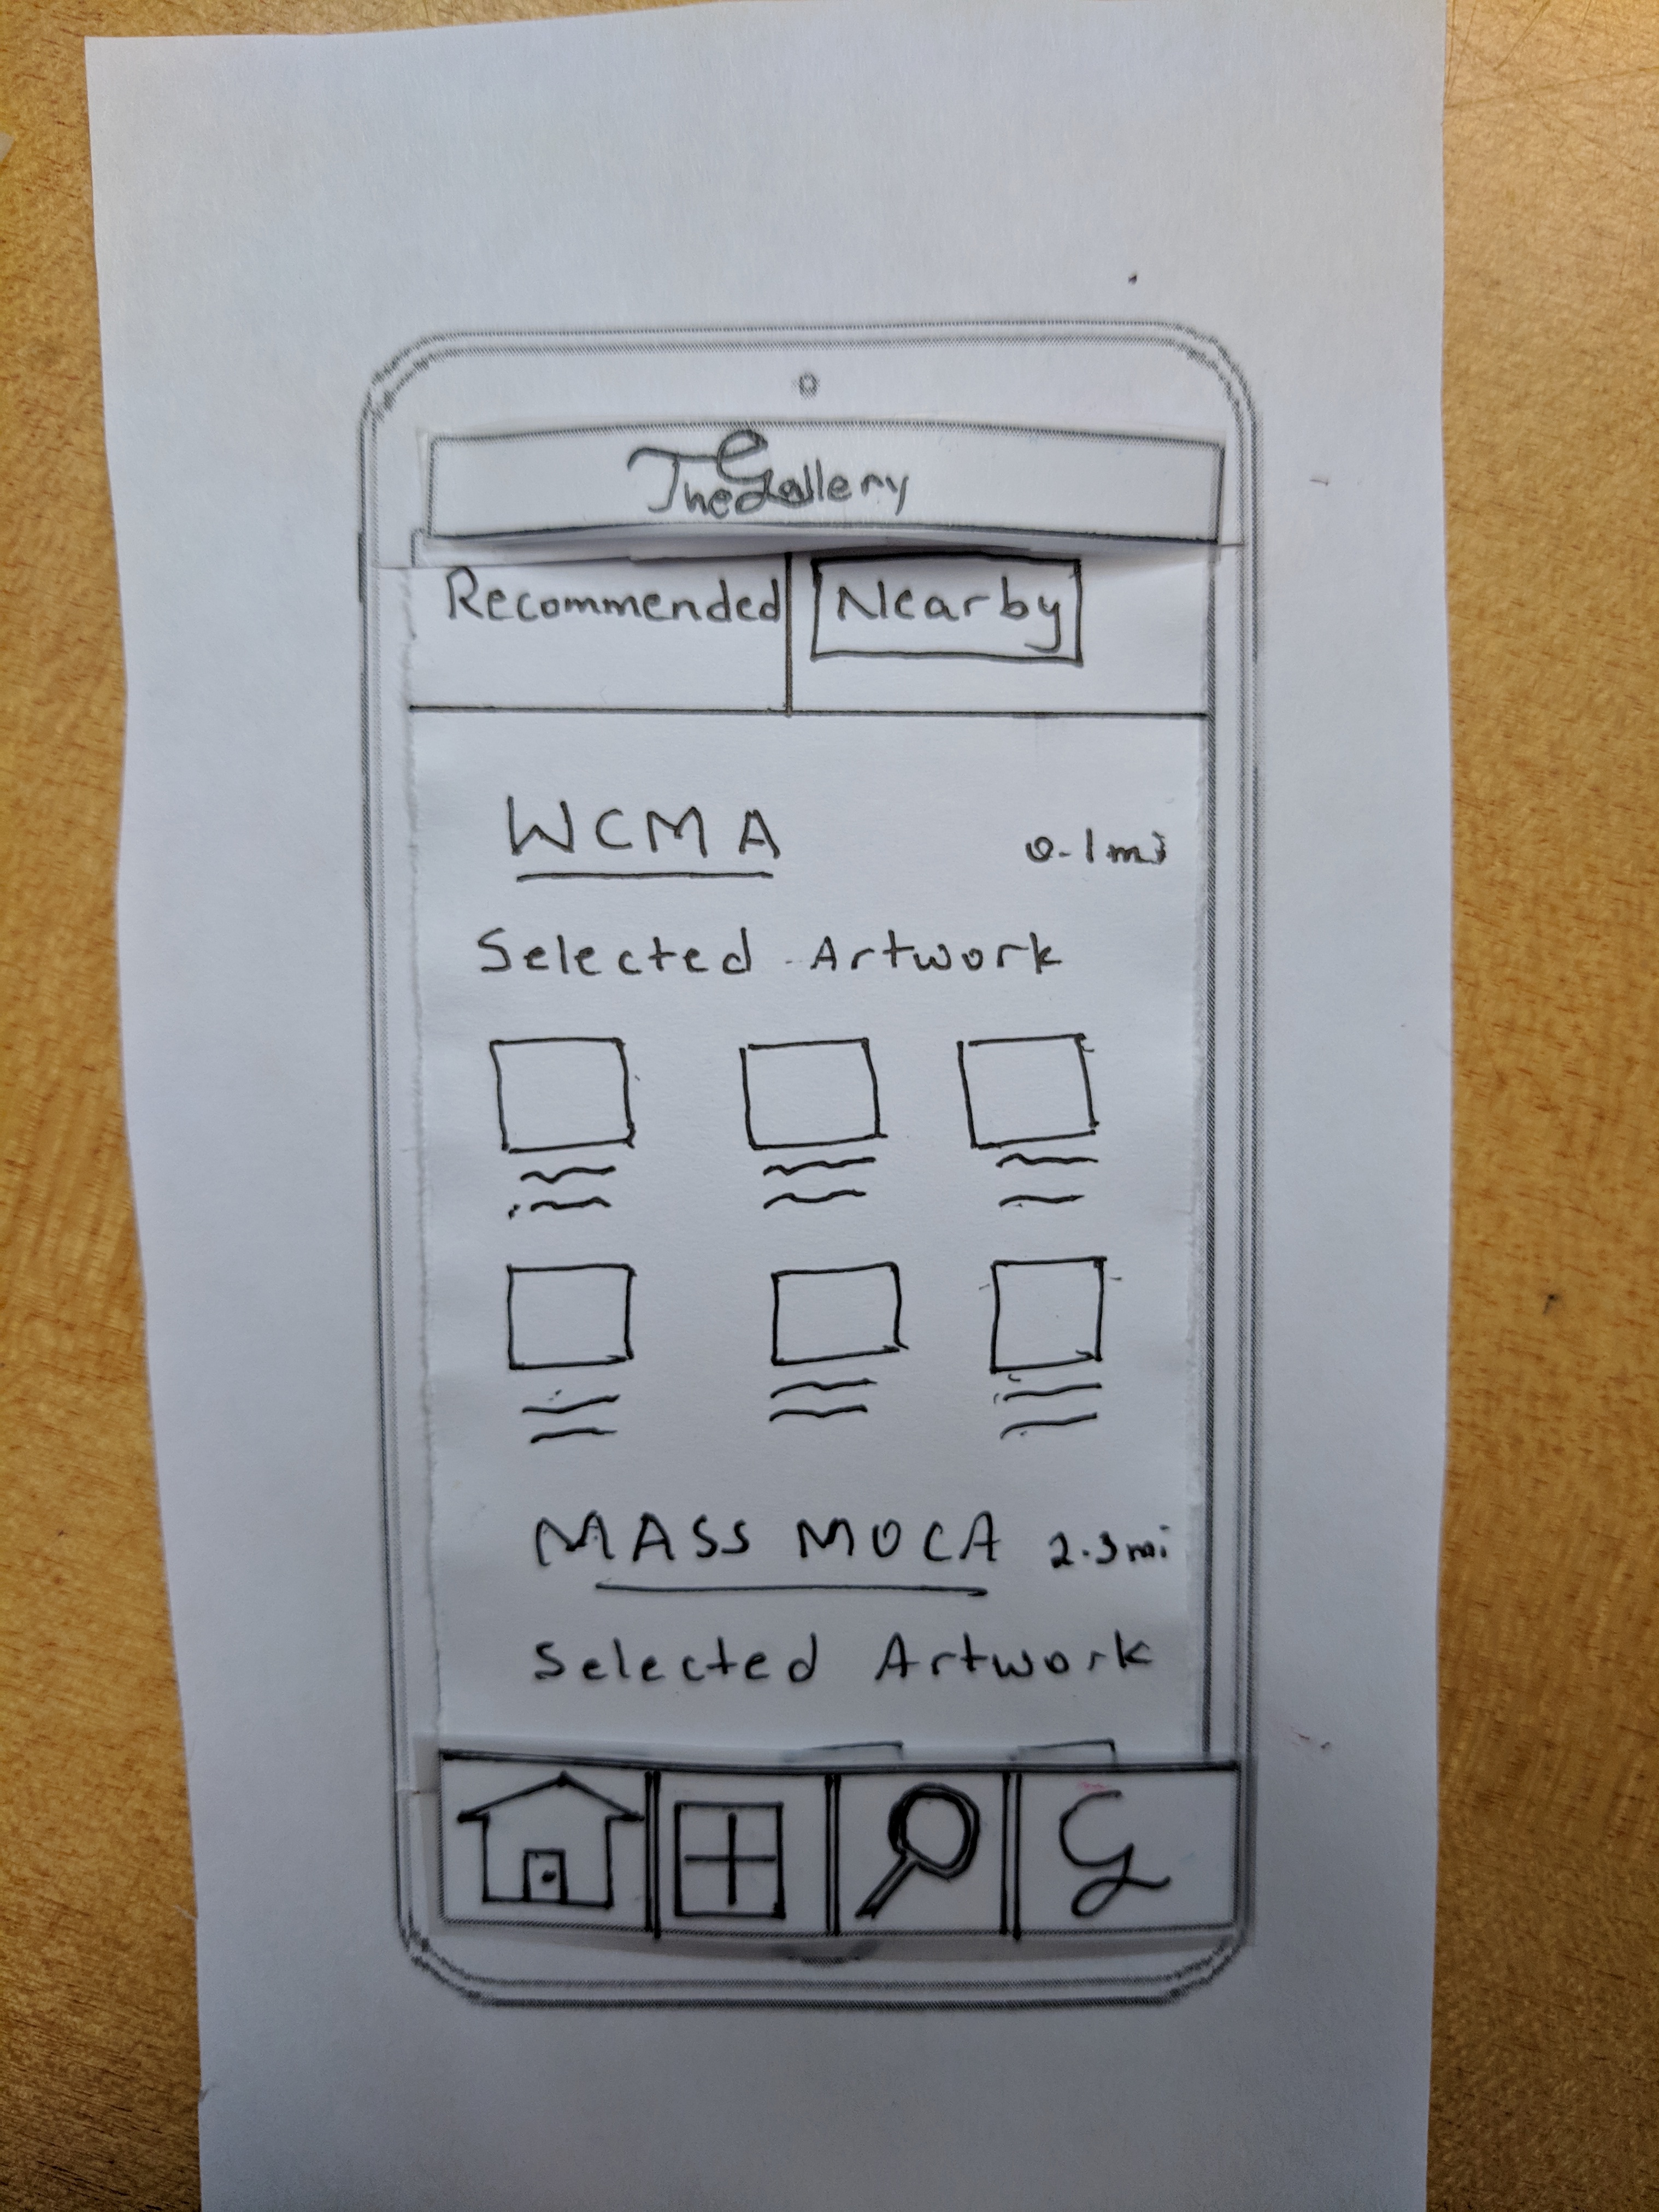 The Gallery
Recommended Nearby
WCMA 0.1mi
Selected Artwork
MASS MOCA 2.3mi
Selected Artwork
G